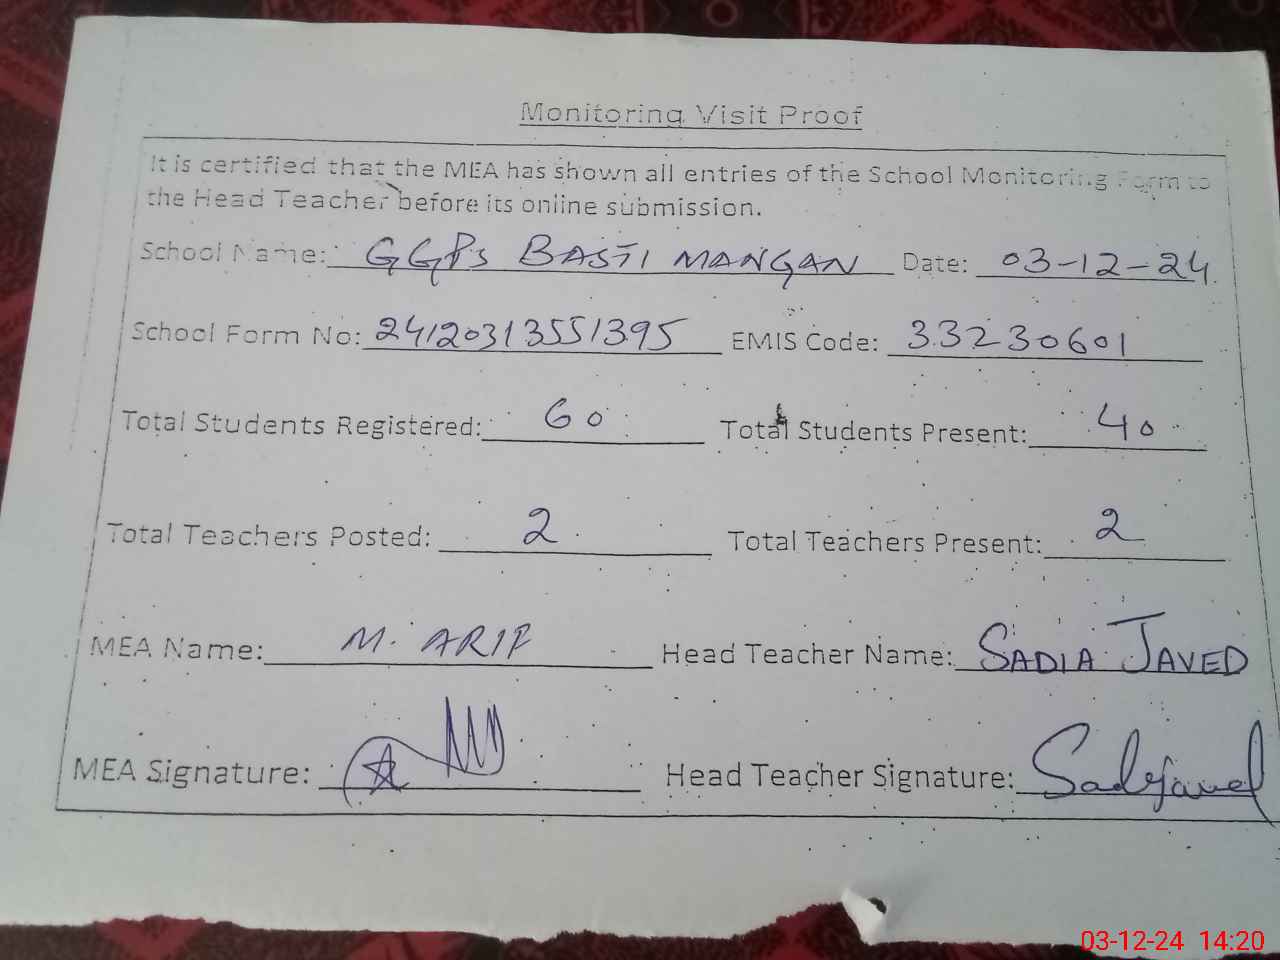 Monitoring Visit Proof
It is certified that the MEA has shown all entries of the School Monitoring Form to
the Head Teacher before its online submission.
School Name: GGPS BASTI MANGAN Date: 03-12-24
School Form No: 24120313551395 EMIS Code: 33230601
Total Students Registered: 60 Total Students Present: 40
Total Teachers Posted: 2 Total Teachers Present: 2
MEA Name: M. ARIF Head Teacher Name: SADIA JAVED
MEA Signature: Head Teacher Signature:
03-12-24 14:20